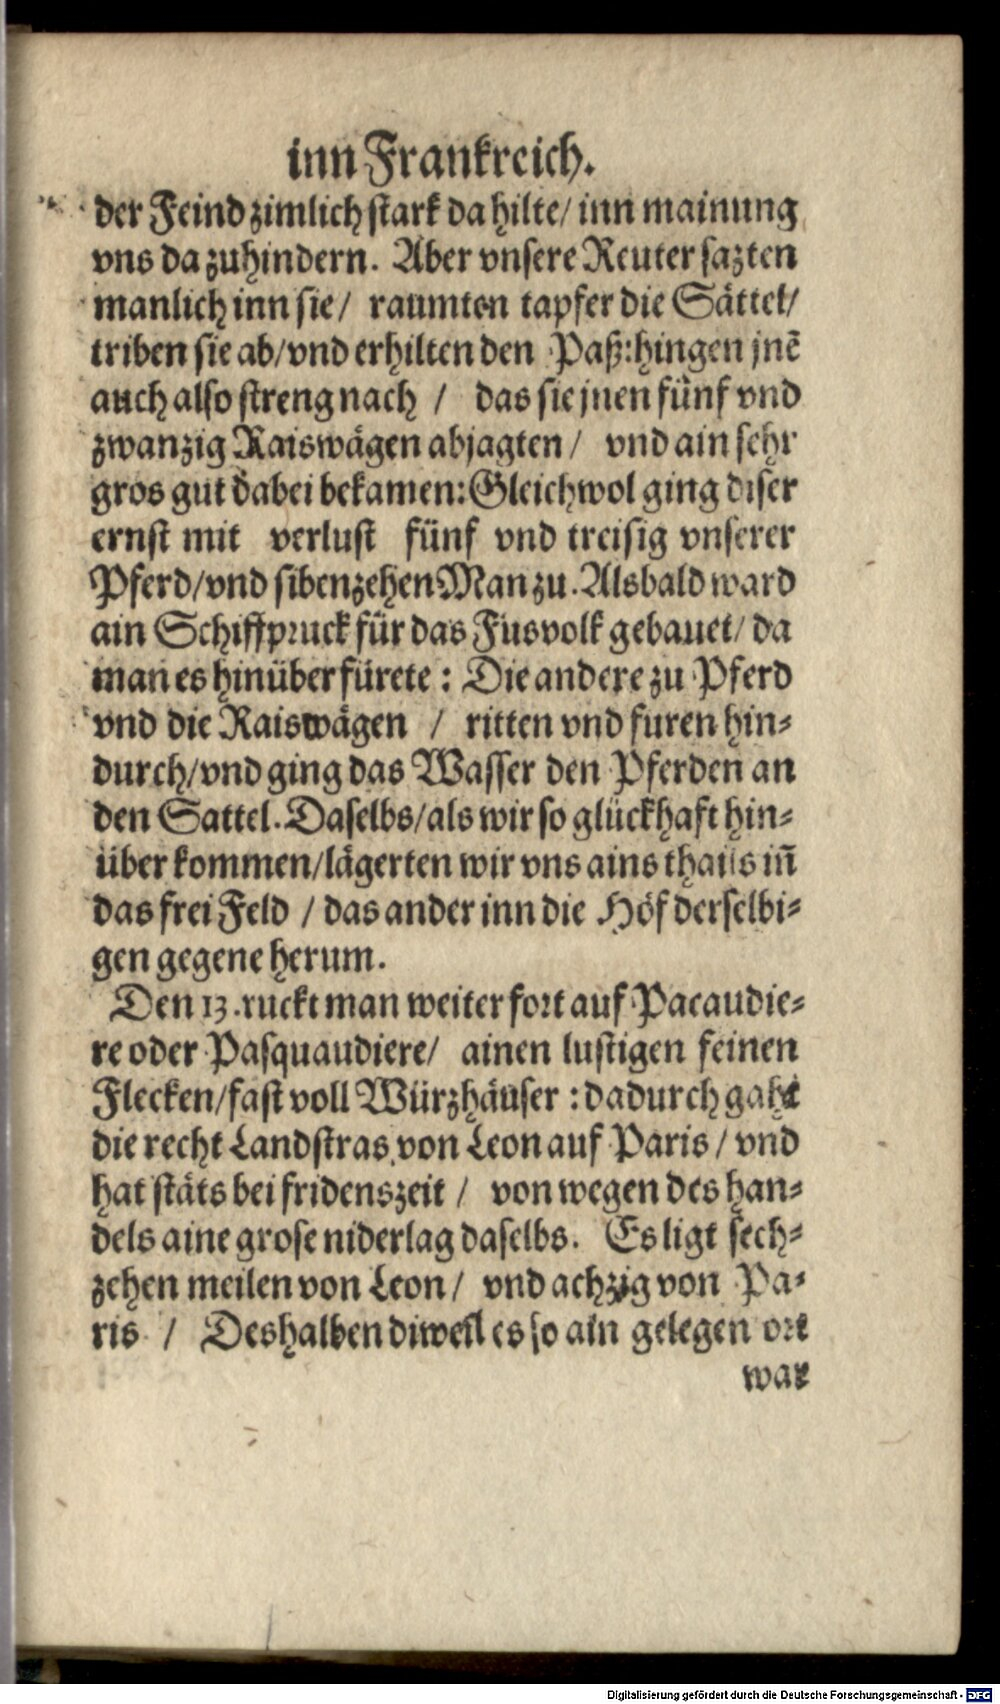 inn Frankreich.
der Feind zimlich stark da hilte/ inn mainung
vns da zuhindern. Aber vnsere Reuter sazten
manlich inn sie/ raumten tapfer die Sättel/
triben sie ab/vnd erhilten den Paß:hingen jnẽ
auch also streng nach / das sie jnen fünf vnd
zwanzig Raiswägen abjagten/ vnd ain sehr
gros gut dabei bekamen:Gleichwol ging diser
ernst mit verlust fünf vnd treisig vnserer
Pferd/vnd sibenzehen Man zu. Alsbald ward
ain Schiffpruck für das Fusvolk gebauet/ da
man es hinüber fürete : Die andere zu Pferd
vnd die Raiswägen / ritten vnd furen hin-
durch/vnd ging das Wasser den Pferden an
den Sattel. Daselbs/als wir so glückhaft hin-
über kommen/lägerten wir vns ains thails iñ
das frei Feld / das ander inn die Höf derselbi-
gen gegene herum.
Den 13. ruckt man weiter fort auf Pacaudie-
re oder Pasquaudiere/ ainen lustigen feinen
Flecken/fast voll Würzhäuser : dadurch gaht
die recht Landstras von Leon auf Paris / vnd
hat stäts bei fridenszeit / von wegen des han-
dels aine grose niderlag daselbs. Es ligt sech-
zehen meilen von Leon/ vnd achzig von Pa-
ris / Deshalben diweil es so ain gelegen ort
war
Digitalisierung gefördert durch die Deutsche Forschungsgemeinschaft - DFG